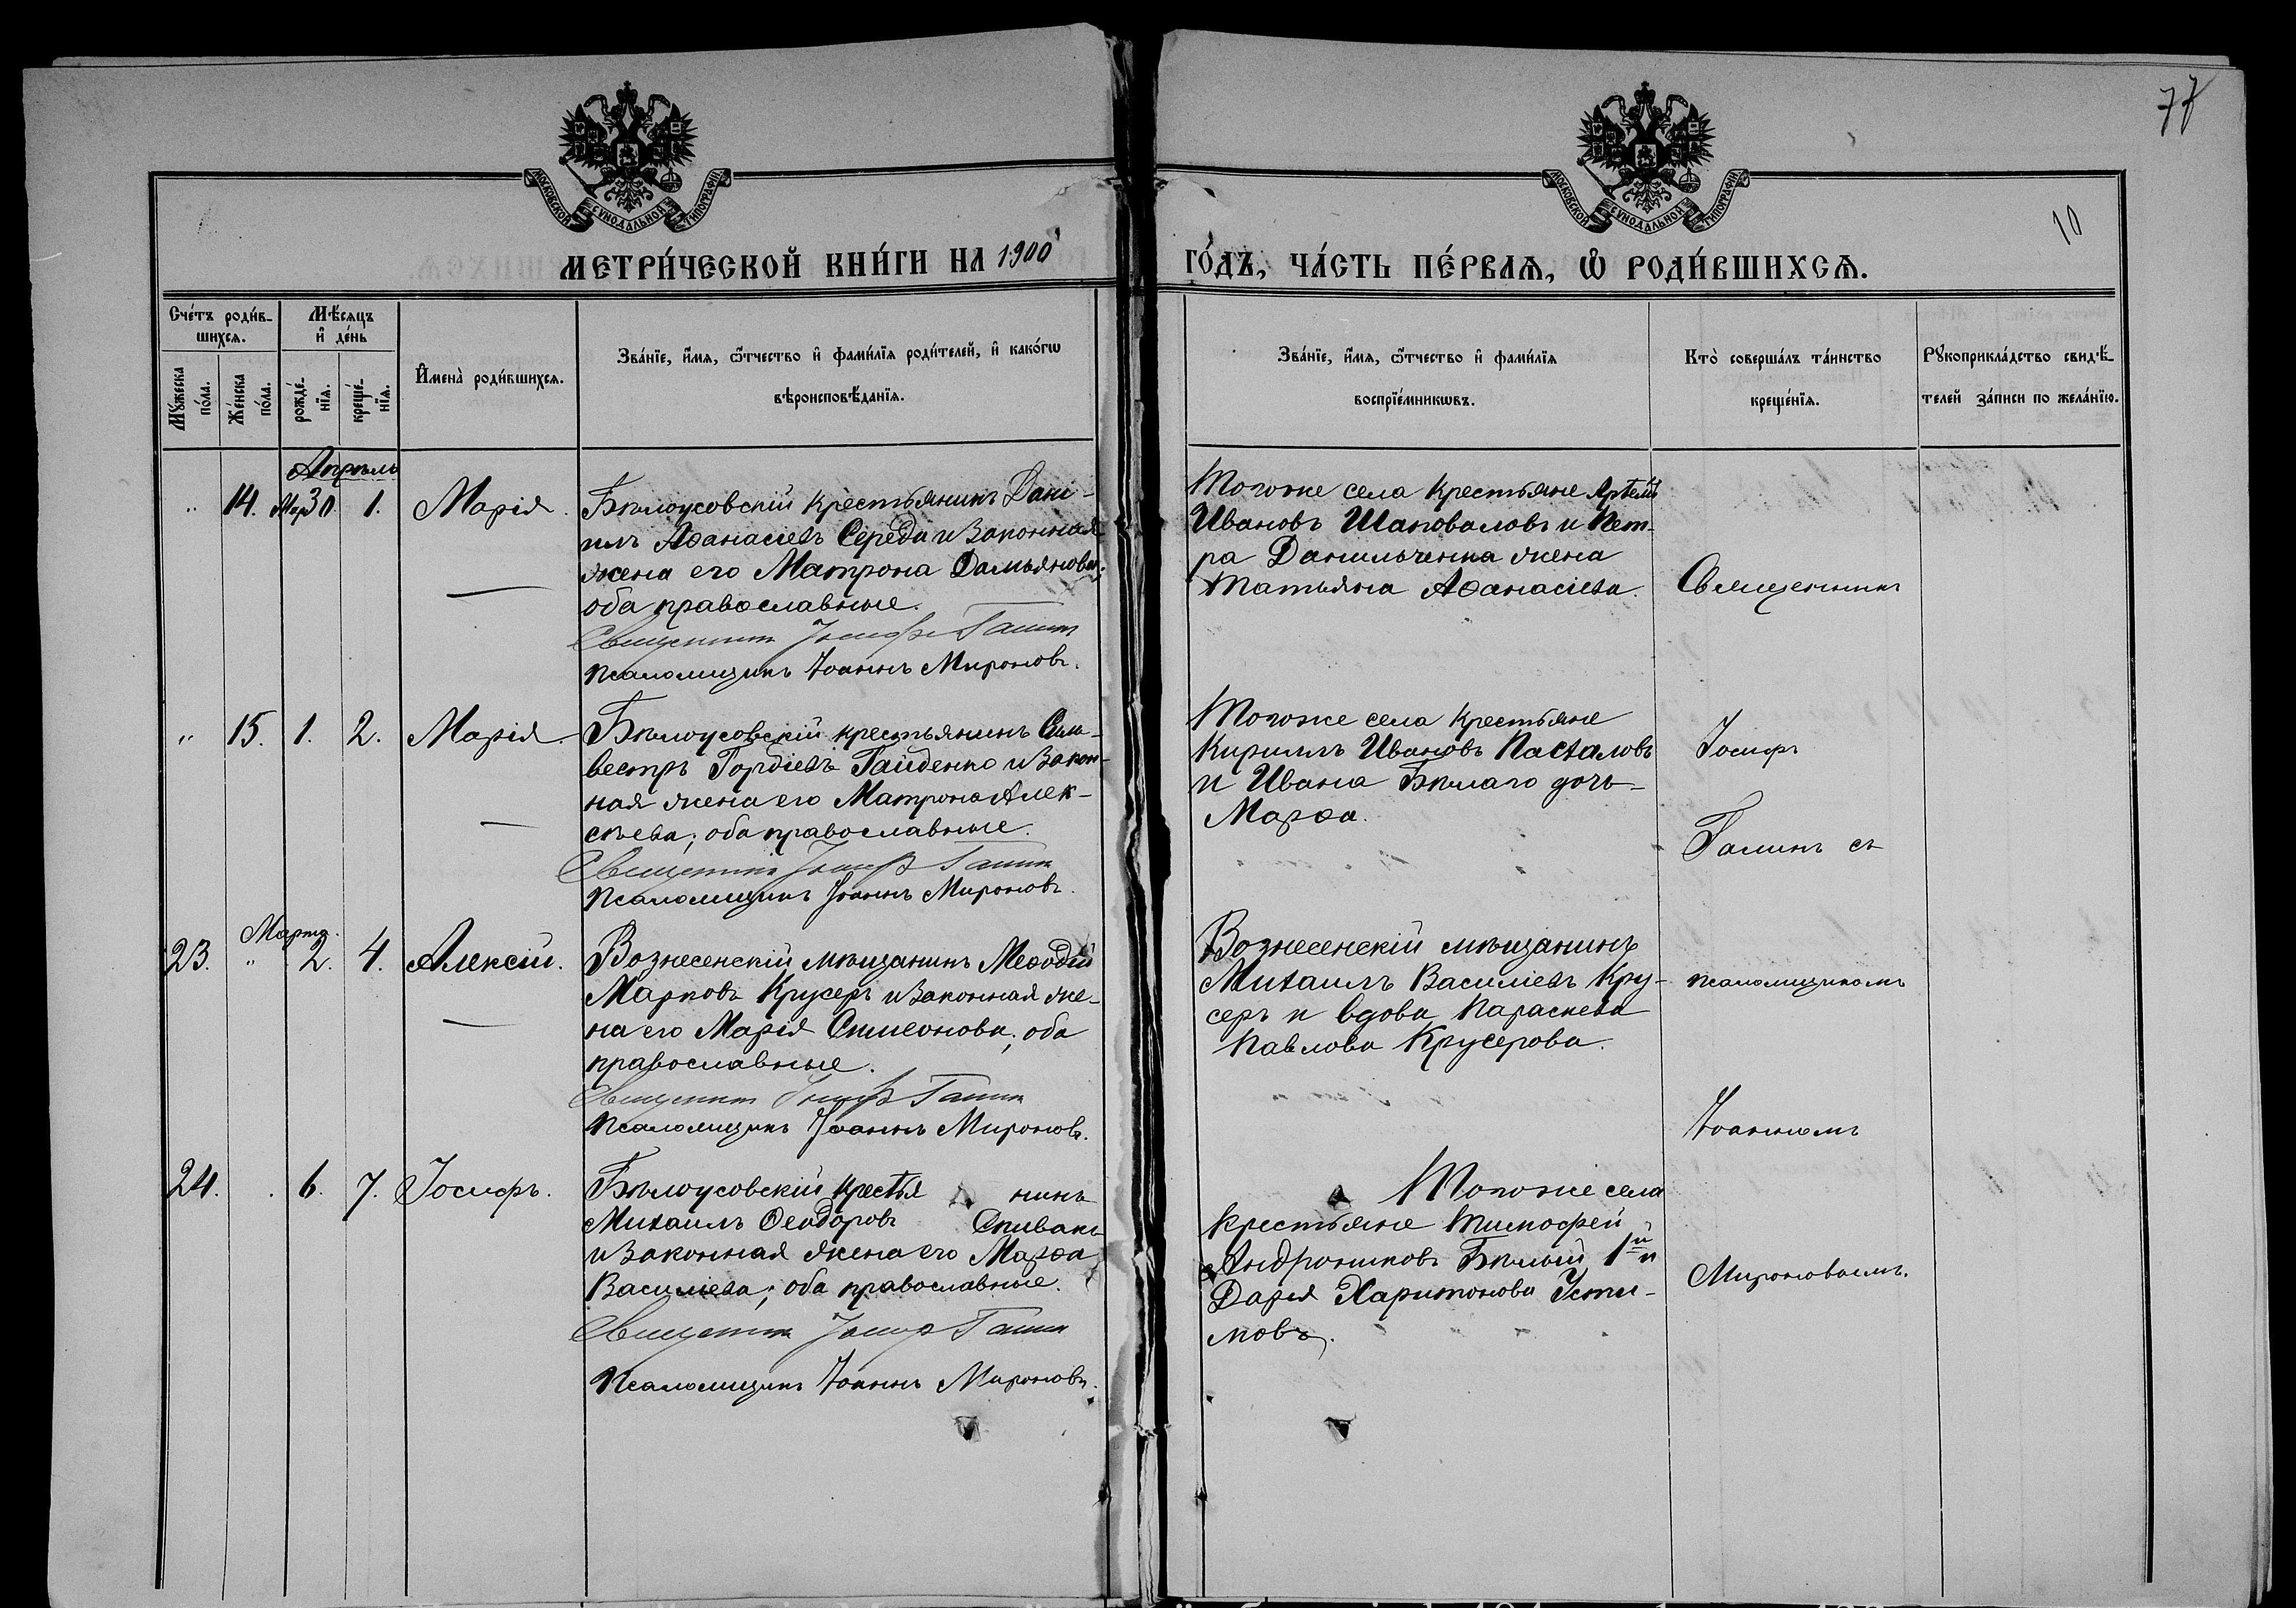 77
10
МОСКОВСКОЙ СѴНОДАЛЬНОЙ ТИПОГРАФІИ
МОСКОВСКОЙ СѴНОДАЛЬНОЙ ТИПОГРАФІИ
МЕТРИ́ЧЕСКОЙ КНИ́ГИ НА 1900 ГО́ДЪ, ЧА́СТЬ ПЕ́РВАѦ, Ѽ РОДИ́ВШИХСѦ.
Сче́тъ роди́в-
шихсѧ.
Мꙋ́жеска по́ла.
Же́нска по́ла.
Мѣ́сѧцъ
и҆ де́нь
рожде́-нїѧ.
креще́-нїѧ.
И҆мена̀ роди́вшихсѧ.
Зва́нїе, и҆́мѧ, ѻ҆́тчество и҆ фами́лїѧ роди́телей, и҆ како́гѡ
вѣроисповѣ́данїѧ.
Зва́нїе, и҆́мѧ, ѻ҆́тчество и҆ фами́лїѧ
воспрїе́мникѡвъ.
Кто̀ соверша́лъ та́инство
креще́нїѧ.
Рꙋкоприкла́дство свидѣ́-
телей за́писи по жела́нїю.
Апрѣль
" 14. Мар 30 1. Марія.
Бѣлоусовскій крестьянинъ Дані-
илъ Аѳанасіевъ Середа и законная
жена его Матрона Дамьянова;
оба православные.
Священникъ Іосифъ Галинъ
Псаломщикъ Іоаннъ Мироновъ.
Тогоже села крестьяне Артемій
Ивановъ Шаповаловъ и Пет-
ра Данильченка жена
Татьяна Аѳанасіева.
Священникъ
" 15. 1. 2. Марія.
Бѣлоусовскій крестьянинъ Сил-
вестръ Гордіевъ Гайденко и закон-
ная жена его Матрона Алек-
сѣева; оба православные.
Священникъ Іосифъ Галинъ
Псаломщикъ Іоаннъ Мироновъ.
Тогоже села крестьяне
Кириллъ Ивановъ Пасхаловъ
и Ивана Бѣлаго дочь
Марѳа.
Іосифъ
Галинъ съ
Мартъ.
23. " 2. 4. Алексій.
Вознесенскій мѣщанинъ Меѳодій
Марковъ Крусеръ и законная же-
на его Марія Симеонова; оба
православные.
Священникъ Іосифъ Галинъ
Псаломщикъ Іоаннъ Мироновъ.
Вознесенскій мѣщанинъ
Михаилъ Василіевъ Кру-
серъ и вдова Параскева
Павлова Крусерова.
псаломщикомъ
Іоанномъ
24. . 6. 7. Іосифъ.
Бѣлоусовскій крестья нинъ
Михаилъ Ѳеодоровъ Спивакъ
и законная жена его Марѳа
Василіева; оба православные.
Священникъ Іосифъ Галинъ
Псаломщикъ Іоаннъ Мироновъ.
Тогоже села
крестьяне Тимофей
Андрониковъ Бѣлый 1й и
Дарія Харитонова Усти-
мовъ.
Мироновымъ.